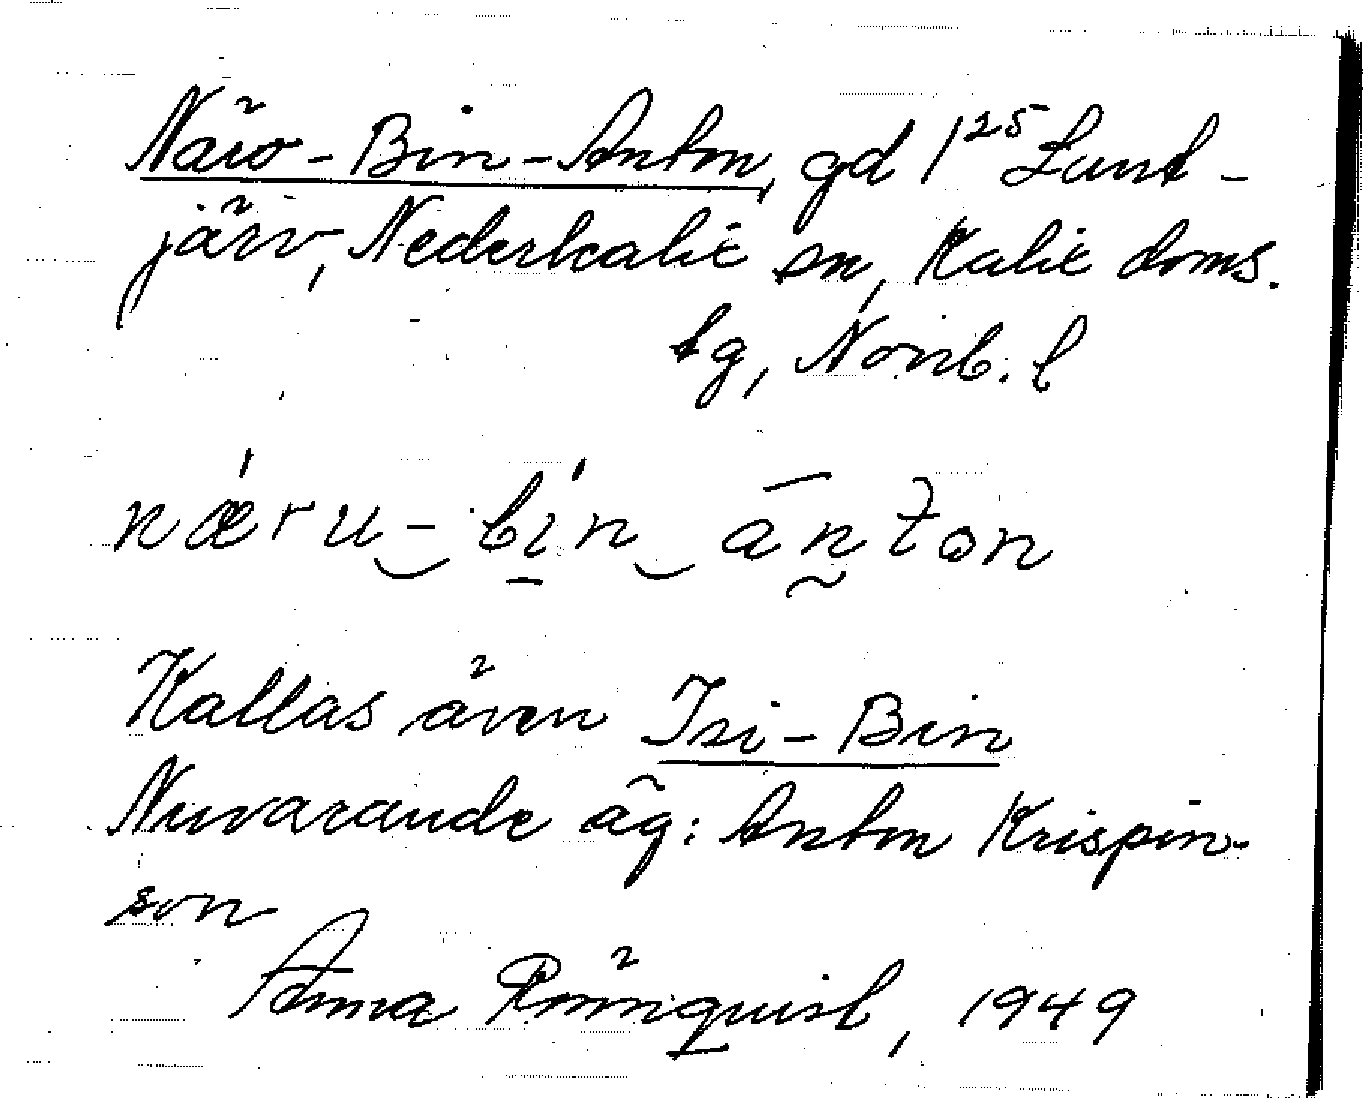 Näio-Bin-Anton, gd 1²⁵ Lant-
järv, Nederkalix sn, Kalix doms.
tg, Norrb. l
næru-bin anton
Kallas även Isi-Bin
Nuvarande äg: Anton Krispin-
son
Anna Rönnquist, 1949